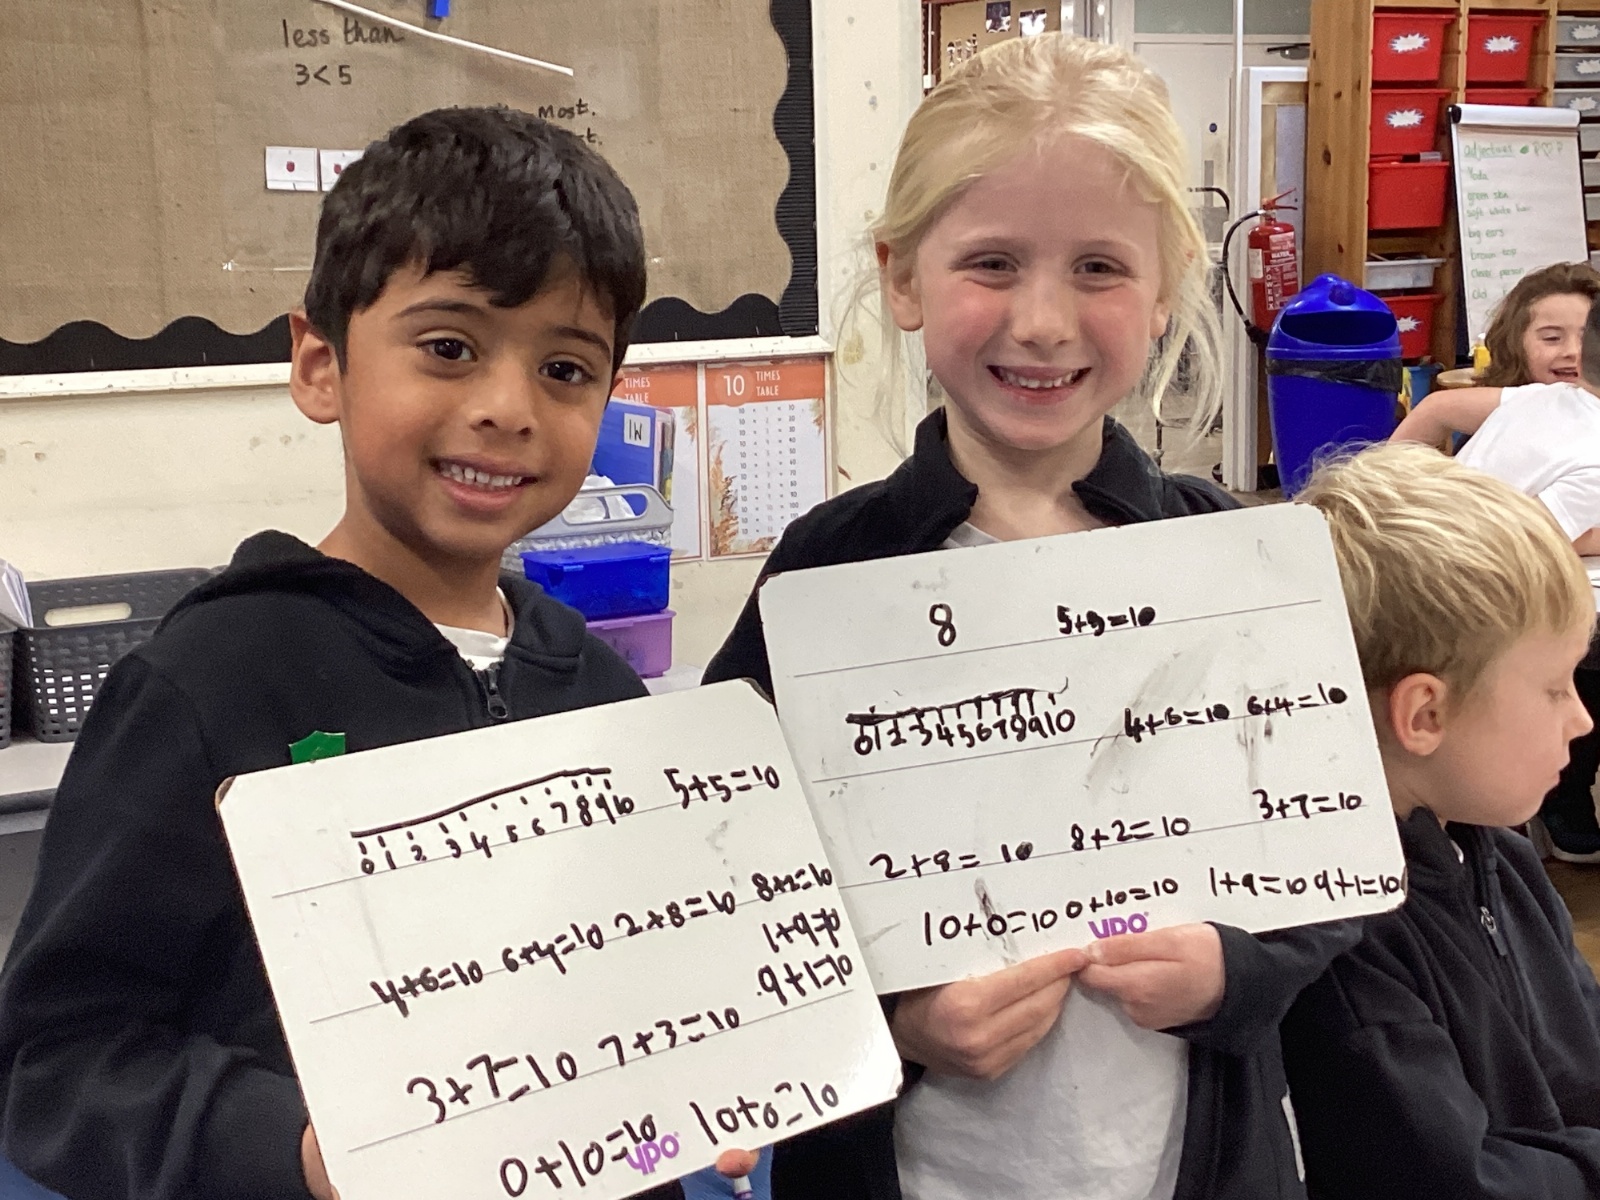 less than
3<5
most.
TIMES
TABLE
10 TIMES
TABLE
1W
adjectives
Yoda
green skin
soft white hair
big ears
brown top
clever person
Old
WATER
0 1 2 3 4 5 6 7 8 9 10
5+5=10
4+6=10 6+4=10 2+8=10 8+2=10
1+9=10
9+1=10
3+7=10 7+3=10
0+10=10 10+0=10
YPO
8 5+5=10
0 1 2 3 4 5 6 7 8 9 10
4+6=10 6+4=10
2+8=10 8+2=10 3+7=10
10+0=10 0+10=10 1+9=10 9+1=10
YPO